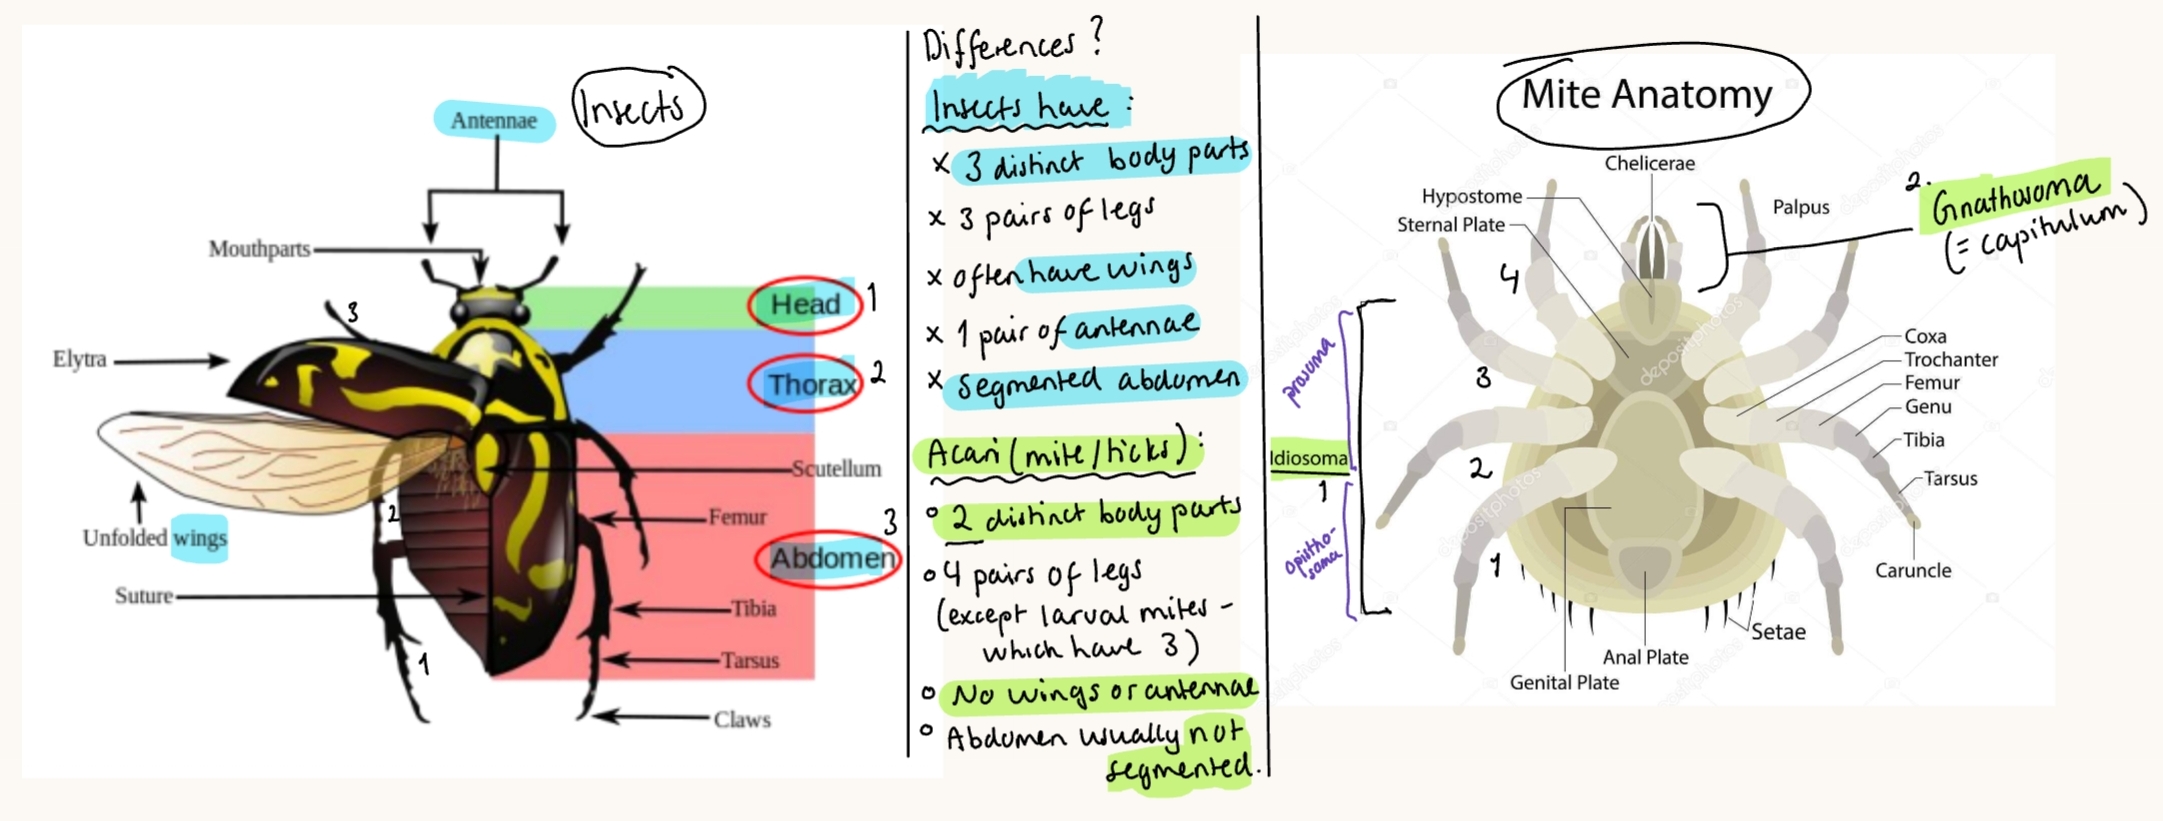 Insects
Antennae
Mouthparts
Head 1
3
Elytra
Thorax 2
Scutellum
2
Femur
Unfolded wings
3
Abdomen
Suture
Tibia
1
Tarsus
Claws
Differences ?
Insects have :
x 3 distinct body parts
x 3 pairs of legs
x often have wings
x 1 pair of antennae
x segmented abdomen
Acari (mite/ticks) :
2 distinct body parts
4 pairs of legs
(except larval mites -
which have 3)
No wings or antennae
Abdomen usually not
segmented.
Mite Anatomy
Chelicerae
Hypostome
Palpus
Sternal Plate
2. Gnathosoma
(= capitulum)
4
prosoma
3
Coxa
Trochanter
Femur
Genu
Tibia
Idiosoma
1
2
Tarsus
opistho-
soma
1
Caruncle
Setae
Anal Plate
Genital Plate
depositphotos
depositphotos
depositphotos
depositphotos